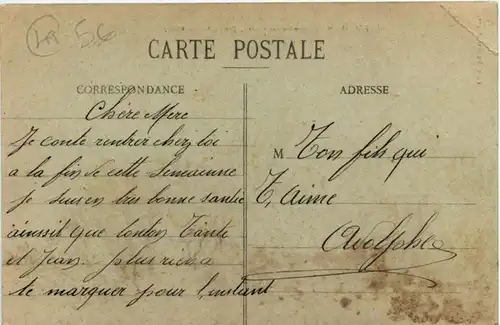 56
CARTE POSTALE
CORRESPONDANCE
ADRESSE
Chère Mère
Je conte rentrer chez toi
a la fin de cette Semainne
je suis en tres bonne santée
ainssit que tonton Tante
et Jean. plus rien a
te marquer pour l'instant
M Ton fils qui
T, aime
Adolphe